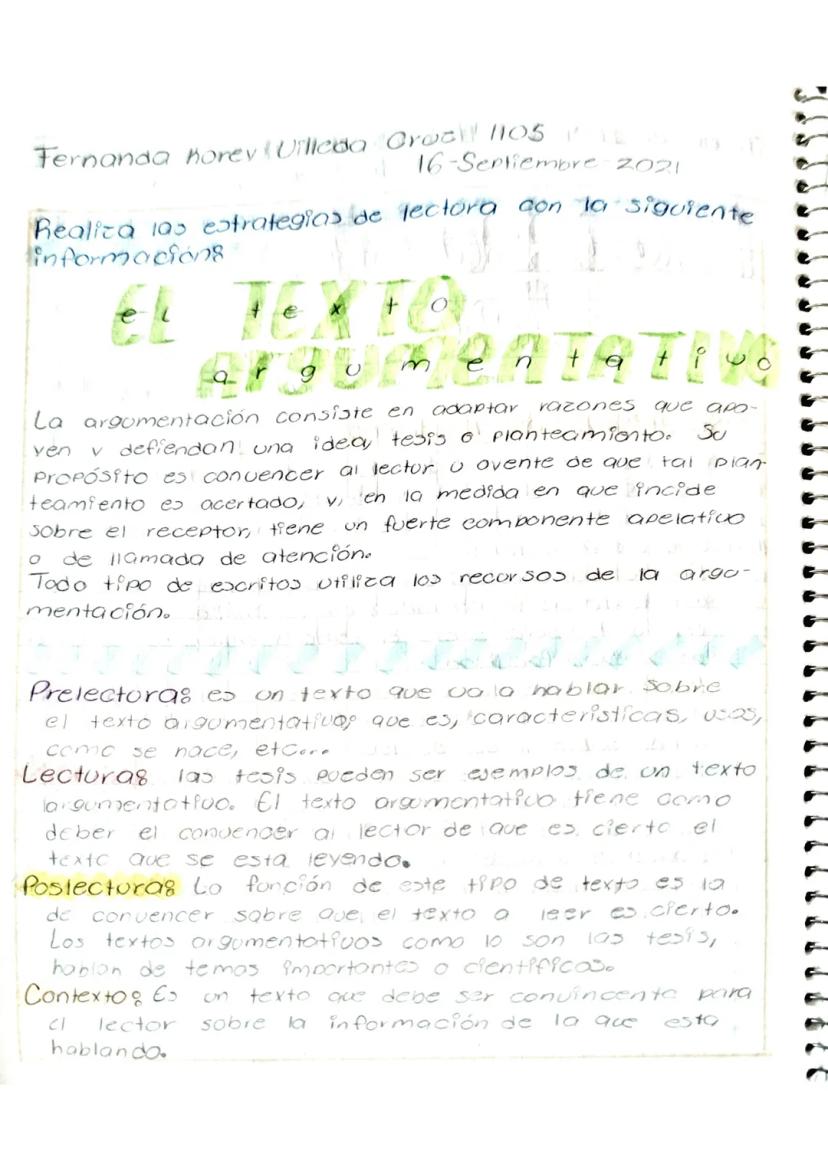 Fernanda Korey Villeda Cruz 1105
16-Septiembre-2021
Realiza las estrategias de lectura con la siguiente
información:
EL TEXTO
el texto
ARGUMENTATIVO
argumentativo
La argumentación consiste en adaptar razones que apo-
yen y defiendan una idea, tesis o planteamiento. Su
propósito es convencer al lector u oyente de que tal plan-
teamiento es acertado, y, en la medida en que incide
sobre el receptor, tiene un fuerte componente apelativo
o de llamada de atención.
Todo tipo de escritos utiliza los recursos de la argu-
mentación.
Prelectura: es un texto que va a hablar sobre
el texto argumentativo, que es, características, usos,
como se hace, etc...
Lectura: las tesis pueden ser ejemplos de un texto
argumentativo. El texto argumentativo tiene como
deber el convencer al lector de que es cierto el
texto que se esta leyendo.
Poslectura: La función de este tipo de texto es la
de convencer sobre que el texto a leer es cierto.
Los textos argumentativos como lo son las tesis,
hablan de temas importantes o científicos.
Contexto: Es un texto que debe ser convincente para
el lector sobre la información de la que esta
hablando.